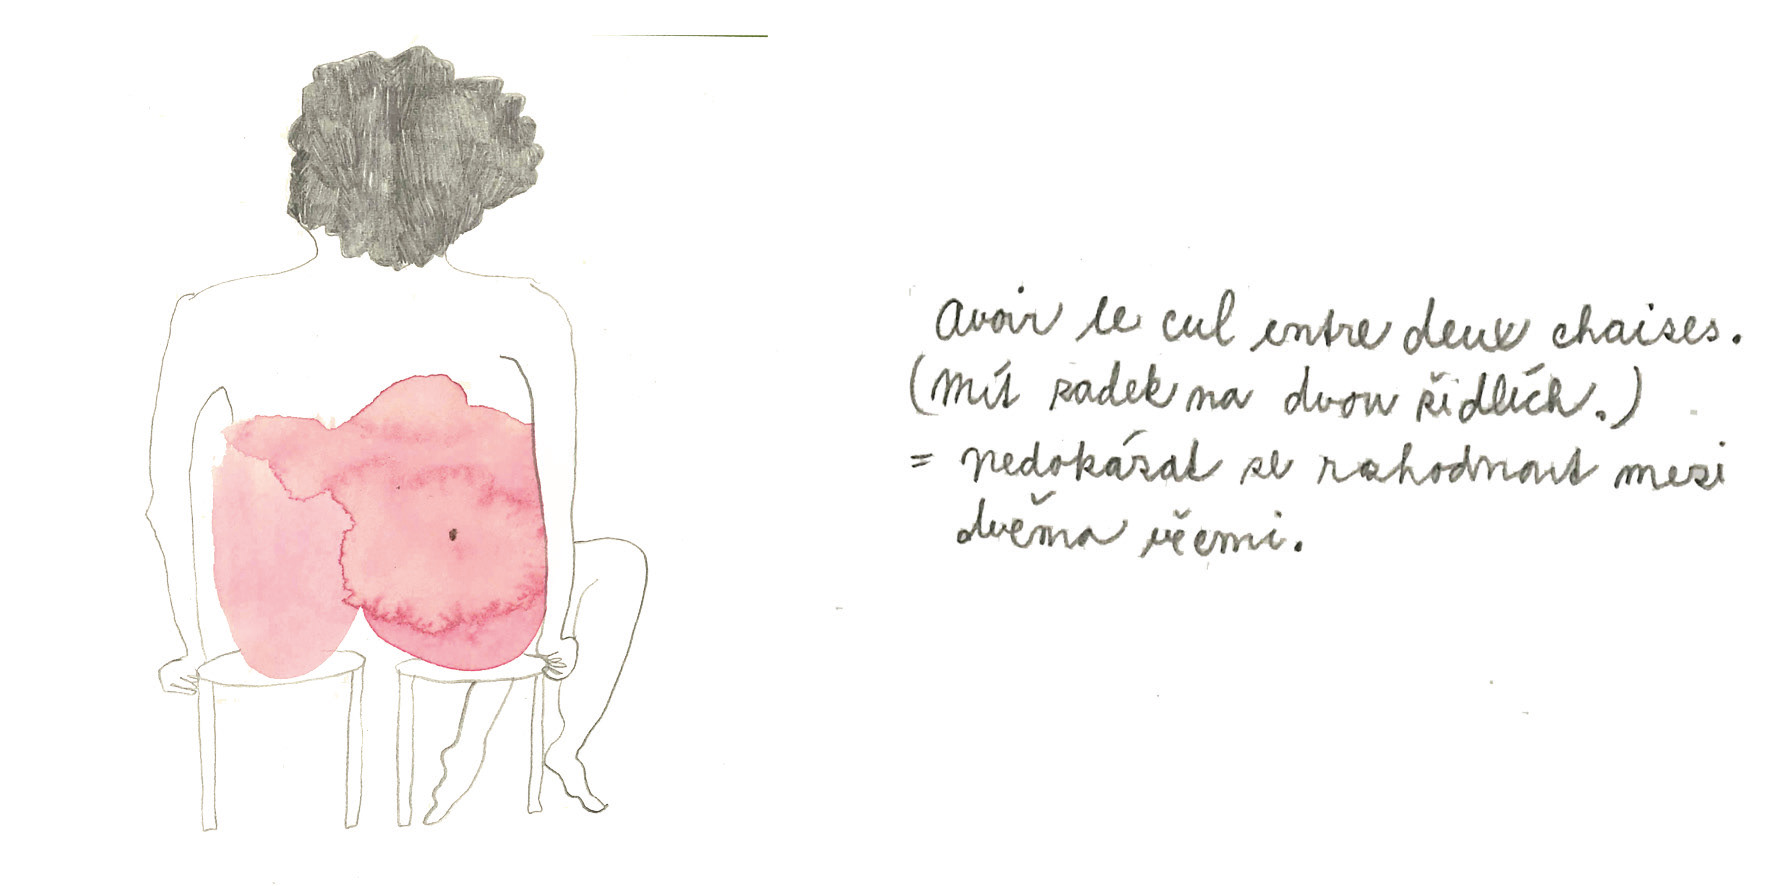 Avoir le cul entre deux chaises.
(Mít zadek na dvou židlích.)
= nedokázat se rozhodnout mezi
dvěma věcmi.